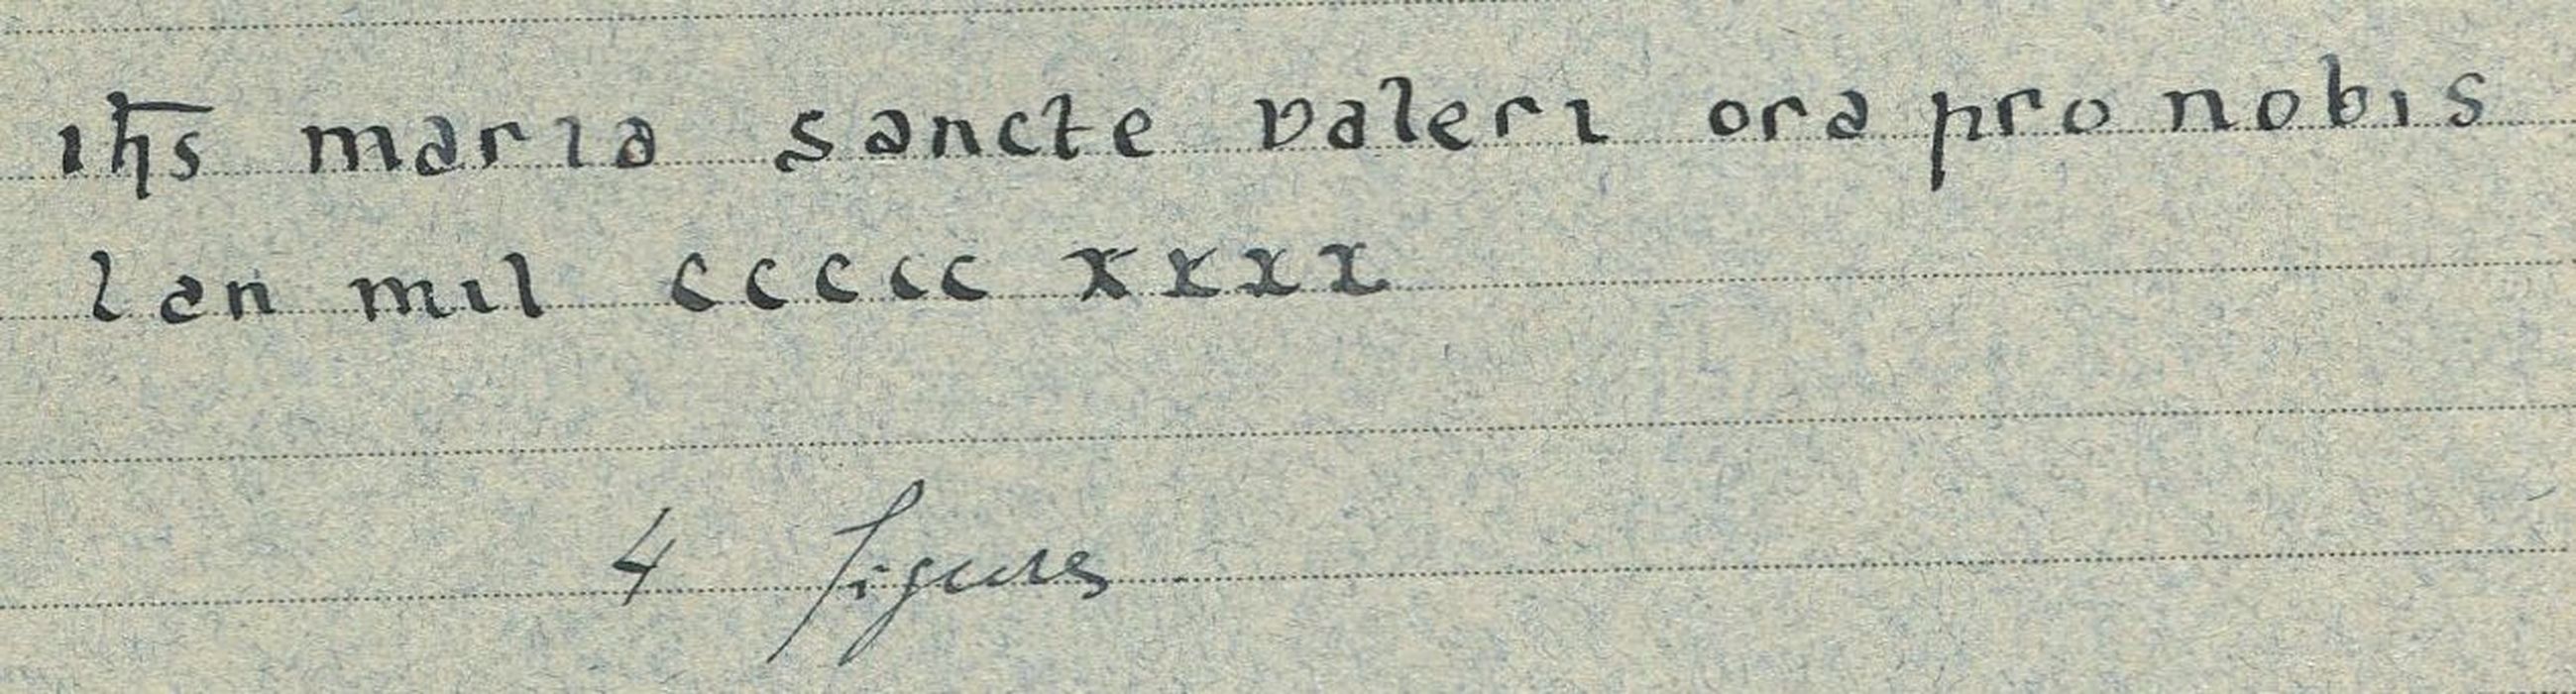 ihs maria sancte valeri ora pro nobis
lan mil ccccc xxxx
4 figures